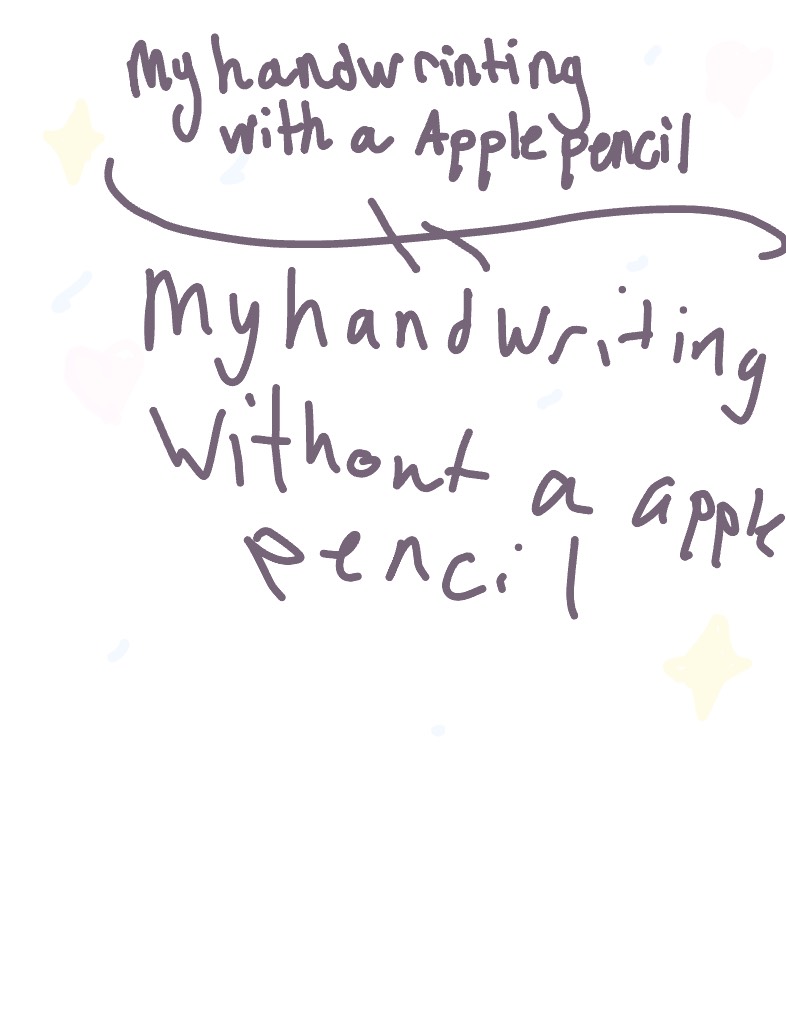 My handwrinting
with a Apple pencil
My handwriting
Without a apple
pencil